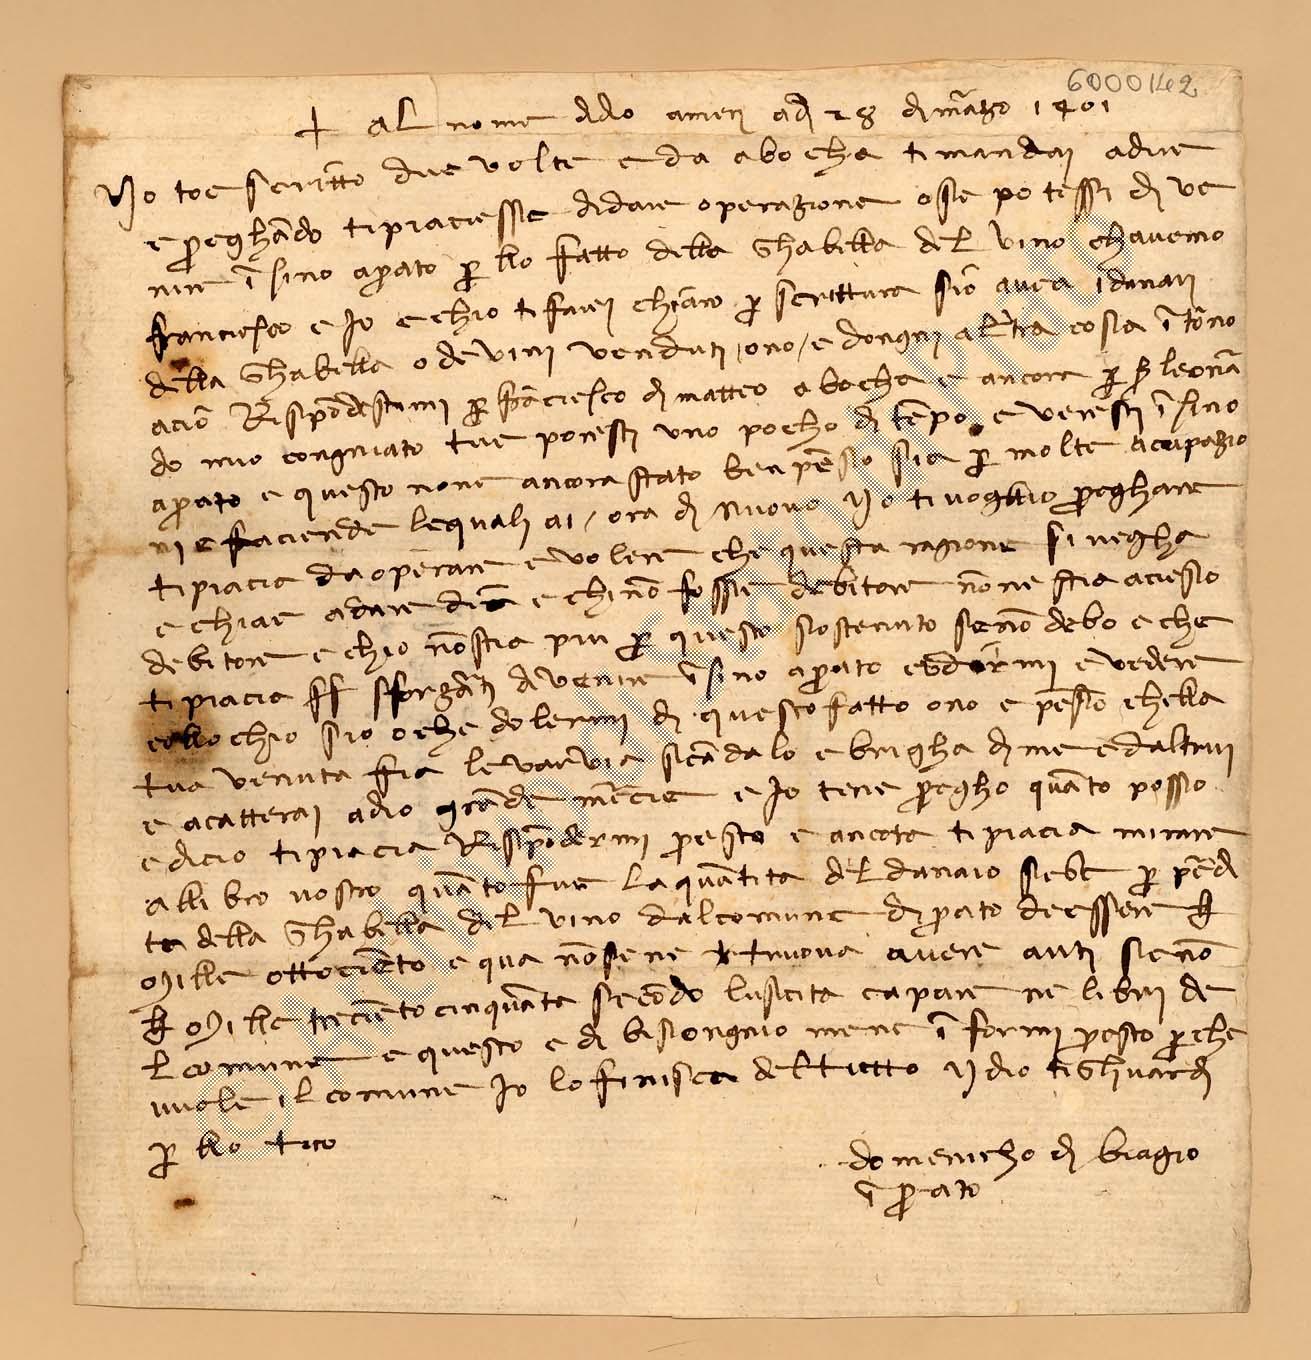 6000142
+ al nome didio amen adi 28 di mãrzo 1401
Io toe scritto due volte e da abocha ti mandai adire
e preghãdo ti piaciessie didare operazione osse potessi di ve
nire ĩsino aprato p llo fatto della ghabella del vino chavemo
franciescho e Io e chio ti farei chiaro p scrittura sio avea idanari
della ghabella o de vini venduti / ono / e dongni altra cosa ĩtorno
aciò Rispõdestimi p frãciescho di matteo abocha e ancora p s leonar
do mio congniato tue poresti uno pocho di tempo e veresti ĩsino
aprato e questo none ancora stato ben pẽso sia p molte acupazio
ni e faciende lequali ai / ora di nuovo Io ti voglio preghare
ti piacia daoperare e volere che questa ragione si vegha
e chi ae adare dia e chi nõ fosse debitore nõne stia aciesso
debitore e chio nõ stia piu p questo sostenuto se nõ debo e che
ti piacia sforzarti di venire ĩsino aprato e udirmi e vedere
collochio sio oche dolermi di questo fatto ono e pẽso chella
tua venuta fia levar via scãdalo e brigha di me e daltrui
e acatterai adio grãde merciè e Io tene pregho quãto posso
e dicio ti piacia Rispõdermi presto e ancora ti piacia mirare
allibro vostro quãto fue la quãtita del danaio sebe p pẽdi
ta della ghabella del vino dal comune di prato deessere
Mille ottociẽto e qua nõ sene truova avere auti se nõ
Mille treciẽto cinquãta secõdo luscita capare ne libri de
l comune e questo e di bisongnio mene ĩformi presto p che
vuole il comune Io lo finisca del tutto Idio ti ghuardi
p llo tuo
domenicho di biagio
ĩ prato